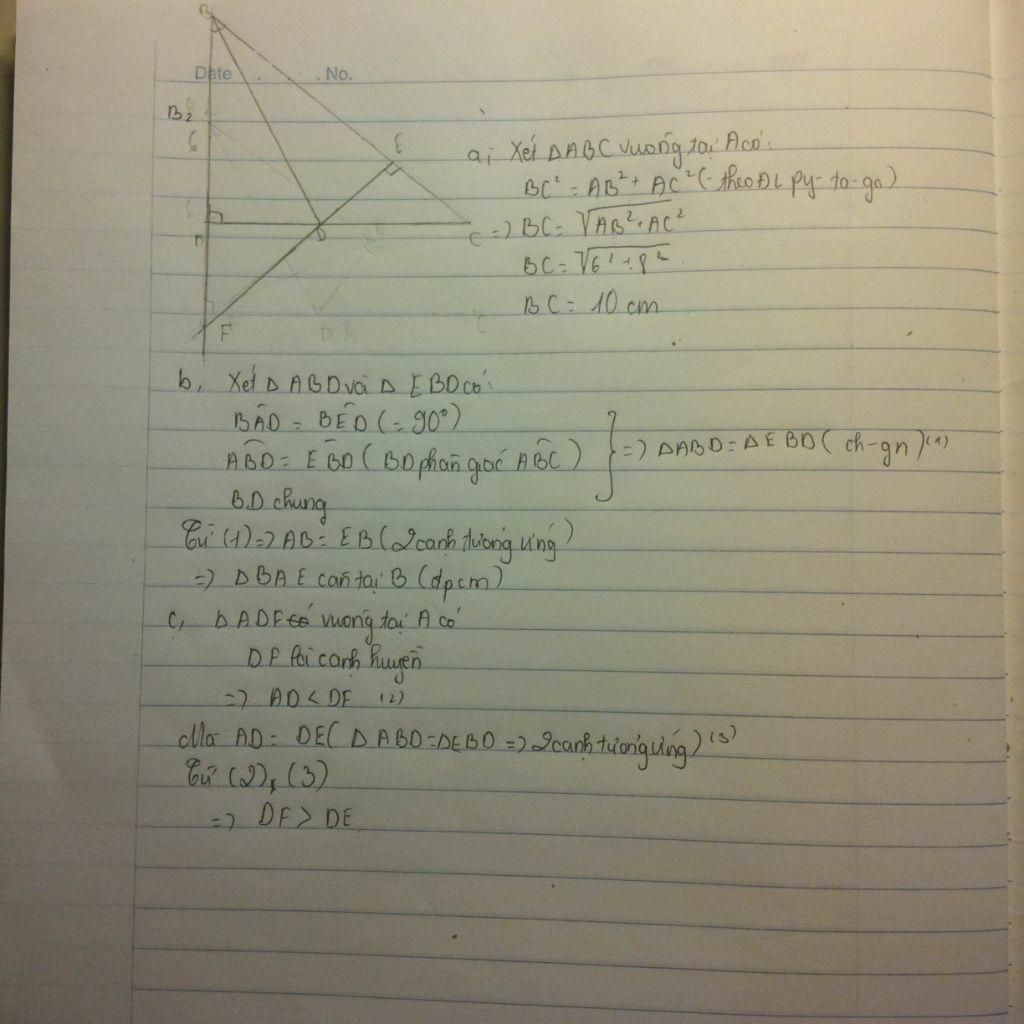 B
Date . . No.
B2
6
E
D
C
F
a, Xét ΔABC vuông tại A có:
BC² = AB² + AC² (theo ĐL py-ta-go)
=> BC = √AB² + AC²
BC = √6² + 8²
BC = 10 cm
b, Xét Δ ABD và Δ EBD có:
BÂD = BÊD (= 90°)
AB̂D = EB̂D (BD phân giác AB̂C)
BD chung
} => ΔABD = ΔEBD (ch-gn) (1)
Từ (1) => AB = EB (2 cạnh tương ứng)
=> ΔBAE cân tại B (đpcm)
c, ΔADF vuông tại A có
DF là cạnh huyền
=> AD < DF (2)
Mà AD = DE (ΔABD = ΔEBD => 2 cạnh tương ứng) (3)
Từ (2), (3)
=> DF > DE